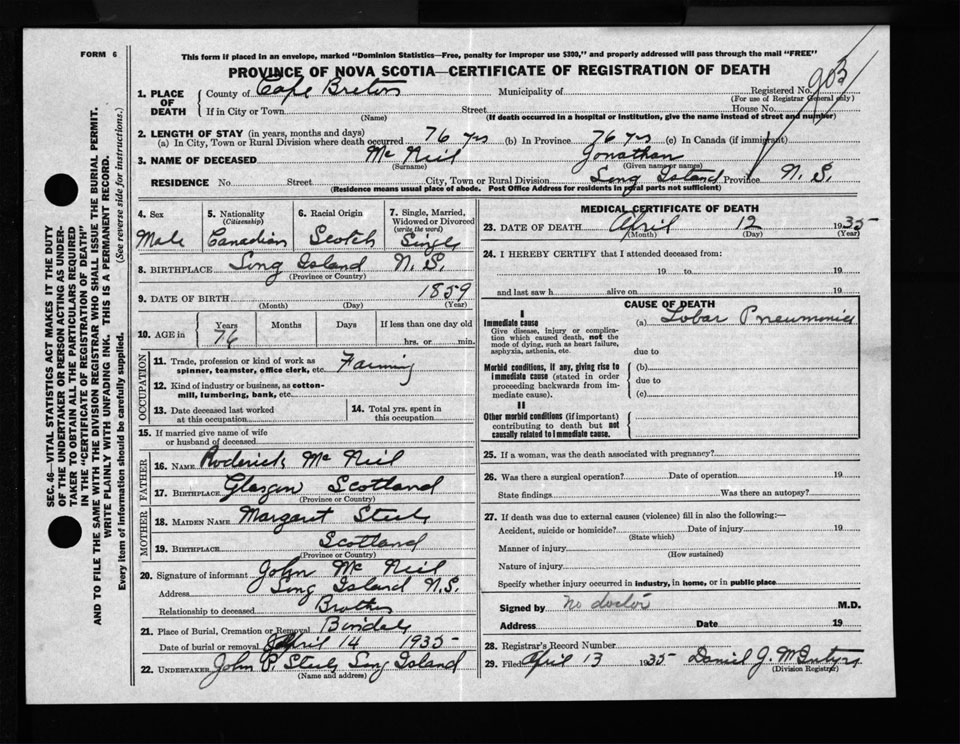 FORM 6
This form if placed in an envelope, marked "Dominion Statistics—Free, penalty for improper use $300," and properly addressed will pass through the mail "FREE"
PROVINCE OF NOVA SCOTIA—CERTIFICATE OF REGISTRATION OF DEATH
1. PLACE OF DEATH
County of Cape Breton Municipality of Registered No. 903
(For use of Registrar General only)
If in City or Town Street House No.
(Name) (If death occurred in a hospital or institution, give the name instead of street and number)
2. LENGTH OF STAY (in years, months and days)
(a) In City, Town or Rural Division where death occurred 76 yrs (b) In Province 76 yrs (c) In Canada (if immigrant)
3. NAME OF DECEASED Mc Neil Jonathan
(Surname) (Given name or names)
RESIDENCE No. Street City, Town or Rural Division Long Island Province N. S.
(Residence means usual place of abode. Post Office Address for residents in rural parts not sufficient)
4. Sex
Male
5. Nationality
(Citizenship)
Canadian
6. Racial Origin
Scotch
7. Single, Married, Widowed or Divorced
(write the word)
Single
8. BIRTHPLACE Long Island N. S.
(Province or Country)
9. DATE OF BIRTH 1859
(Month) (Day) (Year)
10. AGE in Years Months Days If less than one day old
76 hrs. or min.
OCCUPATION
11. Trade, profession or kind of work as spinner, teamster, office clerk, etc. Farming
12. Kind of industry or business, as cotton-mill, lumbering, bank, etc.
13. Date deceased last worked at this occupation
14. Total yrs. spent in this occupation
15. If married give name of wife or husband of deceased
FATHER
16. NAME Roderick Mc Neil
17. BIRTHPLACE Glasgow Scotland
(Province or Country)
MOTHER
18. MAIDEN NAME Margaret Steele
19. BIRTHPLACE Scotland
(Province or Country)
20. Signature of informant John Mc Neil
Address Long Island N. S.
Relationship to deceased Brother
21. Place of Burial, Cremation or Removal
Date of burial or removal April 14 1935
22. UNDERTAKER John P. Steele Long Island
(Name and address)
MEDICAL CERTIFICATE OF DEATH
23. DATE OF DEATH April 12 1935
(Month) (Day) (Year)
24. I HEREBY CERTIFY that I attended deceased from:
19 to 19
and last saw h alive on 19
CAUSE OF DEATH
I
Immediate cause
Give disease, injury or complication which caused death, not the mode of dying, such as heart failure, asphyxia, asthenia, etc.
(a) Lobar Pneumonia
due to
Morbid conditions, if any, giving rise to immediate cause (stated in order proceeding backwards from immediate cause).
(b)
due to
(c)
II
Other morbid conditions (if important) contributing to death but not causally related to immediate cause.
25. If a woman, was the death associated with pregnancy?
26. Was there a surgical operation? Date of operation 19
State findings Was there an autopsy?
27. If death was due to external causes (violence) fill in also the following:—
Accident, suicide or homicide? Date of injury 19
(State which)
Manner of injury
(How sustained)
Nature of injury
Specify whether injury occurred in industry, in home, or in public place
Signed by no doctor M.D.
Address Date 19
28. Registrar's Record Number
29. Filed April 13 1935 Daniel J. McIntyre
(Division Registrar)
SEC. 46—VITAL STATISTICS ACT MAKES IT THE DUTY
OF THE UNDERTAKER OR PERSON ACTING AS UNDER-
TAKER TO OBTAIN ALL THE PARTICULARS REQUIRED
IN THE "CERTIFICATE OF REGISTRATION OF DEATH"
AND TO FILE THE SAME WITH THE DIVISION REGISTRAR WHO SHALL ISSUE THE BURIAL PERMIT.
WRITE PLAINLY WITH UNFADING INK. THIS IS A PERMANENT RECORD.
Every item of information should be carefully supplied. (See reverse side for instructions.)